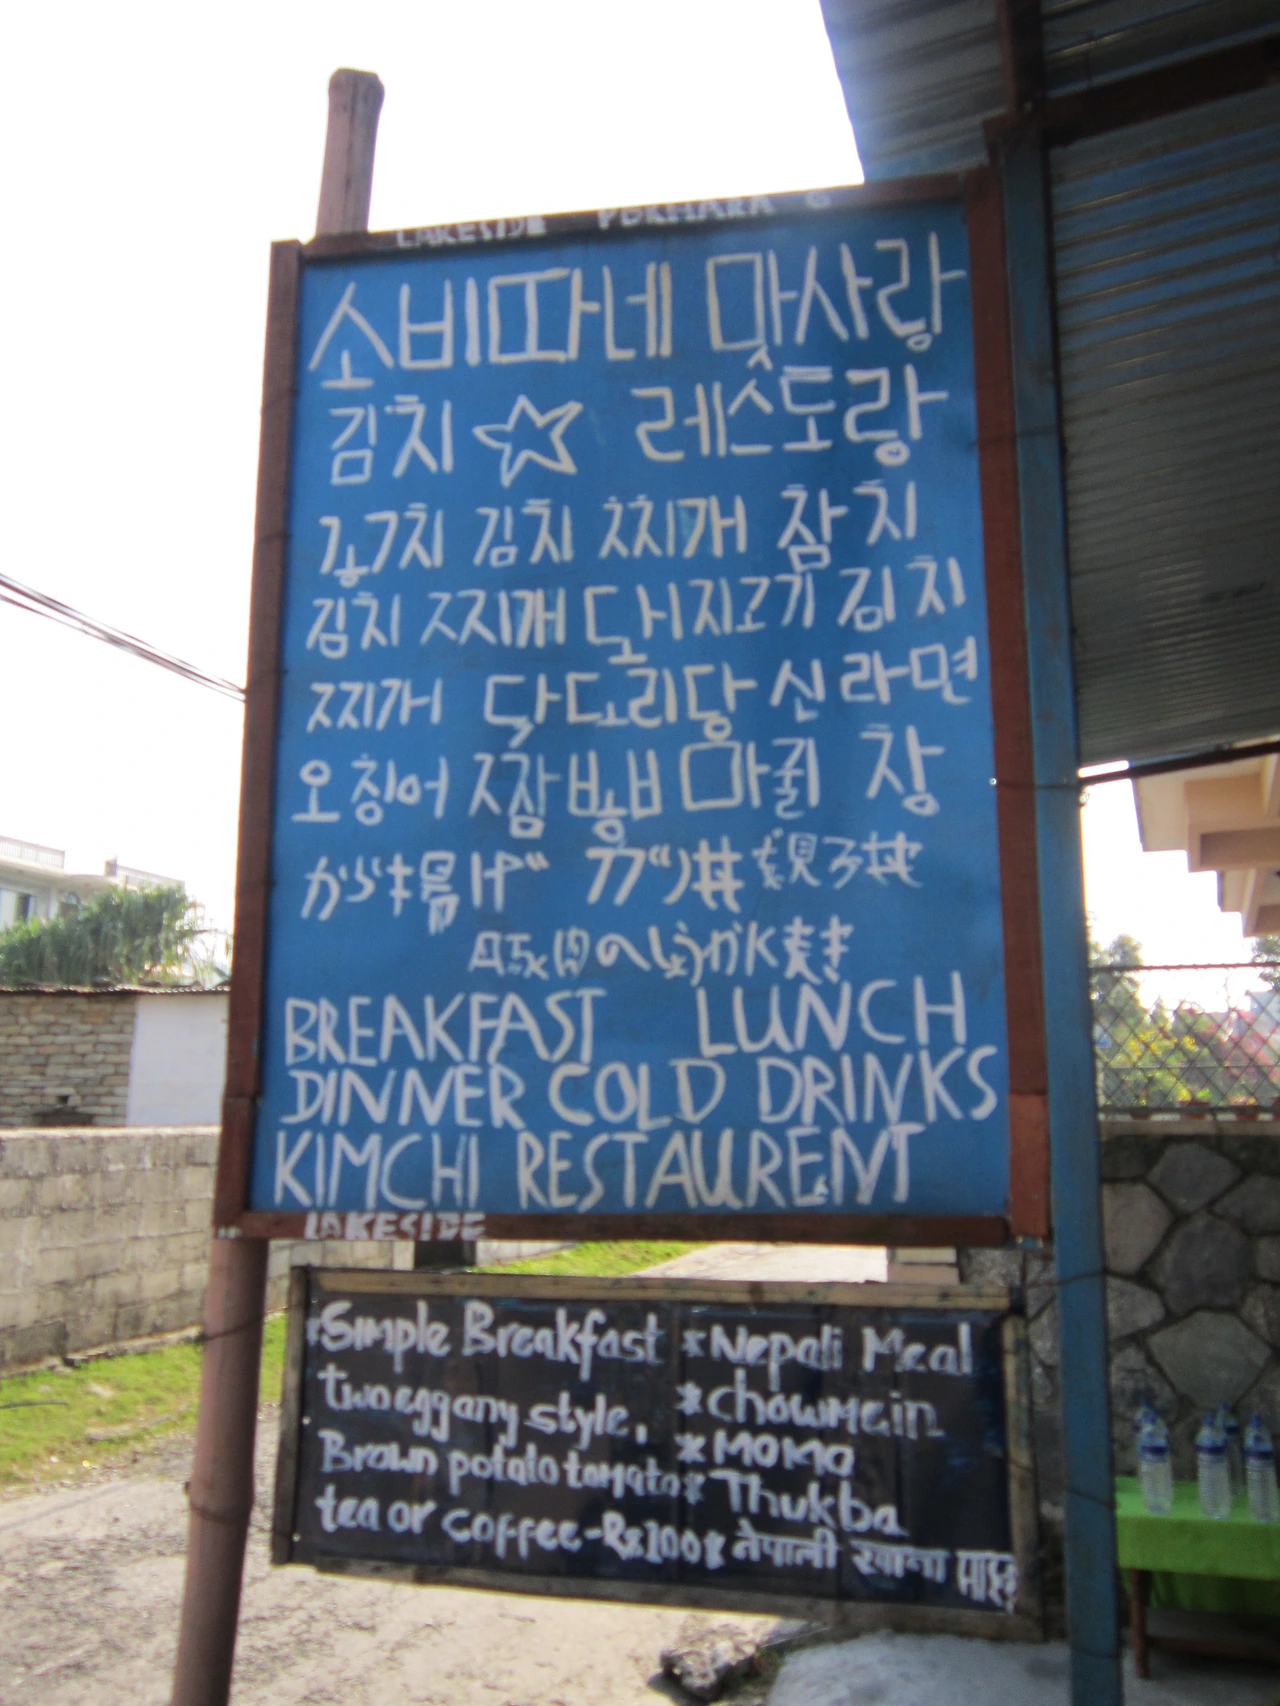 LAKESIDE POKHARA 6
소비따네 맛사랑
김치 ☆ 레스토랑
꽁치 김치 찌개 참치
김치 찌개 돼지고기 김치
찌개 닭도리탕 신라면
오징어 짬뽕 마귈 창
から揚げ カツ丼 親子丼
豚肉のしょうが 焼き
BREAKFAST LUNCH
DINNER COLD DRINKS
KIMCHI RESTAURENT
LAKESIDE
Simple Breakfast
two egg any style,
Brown potato tomato
tea or coffee-Rs200
*Nepali Meal
*chowmein
*MOMO
*Thukba
*नेपाली खाना